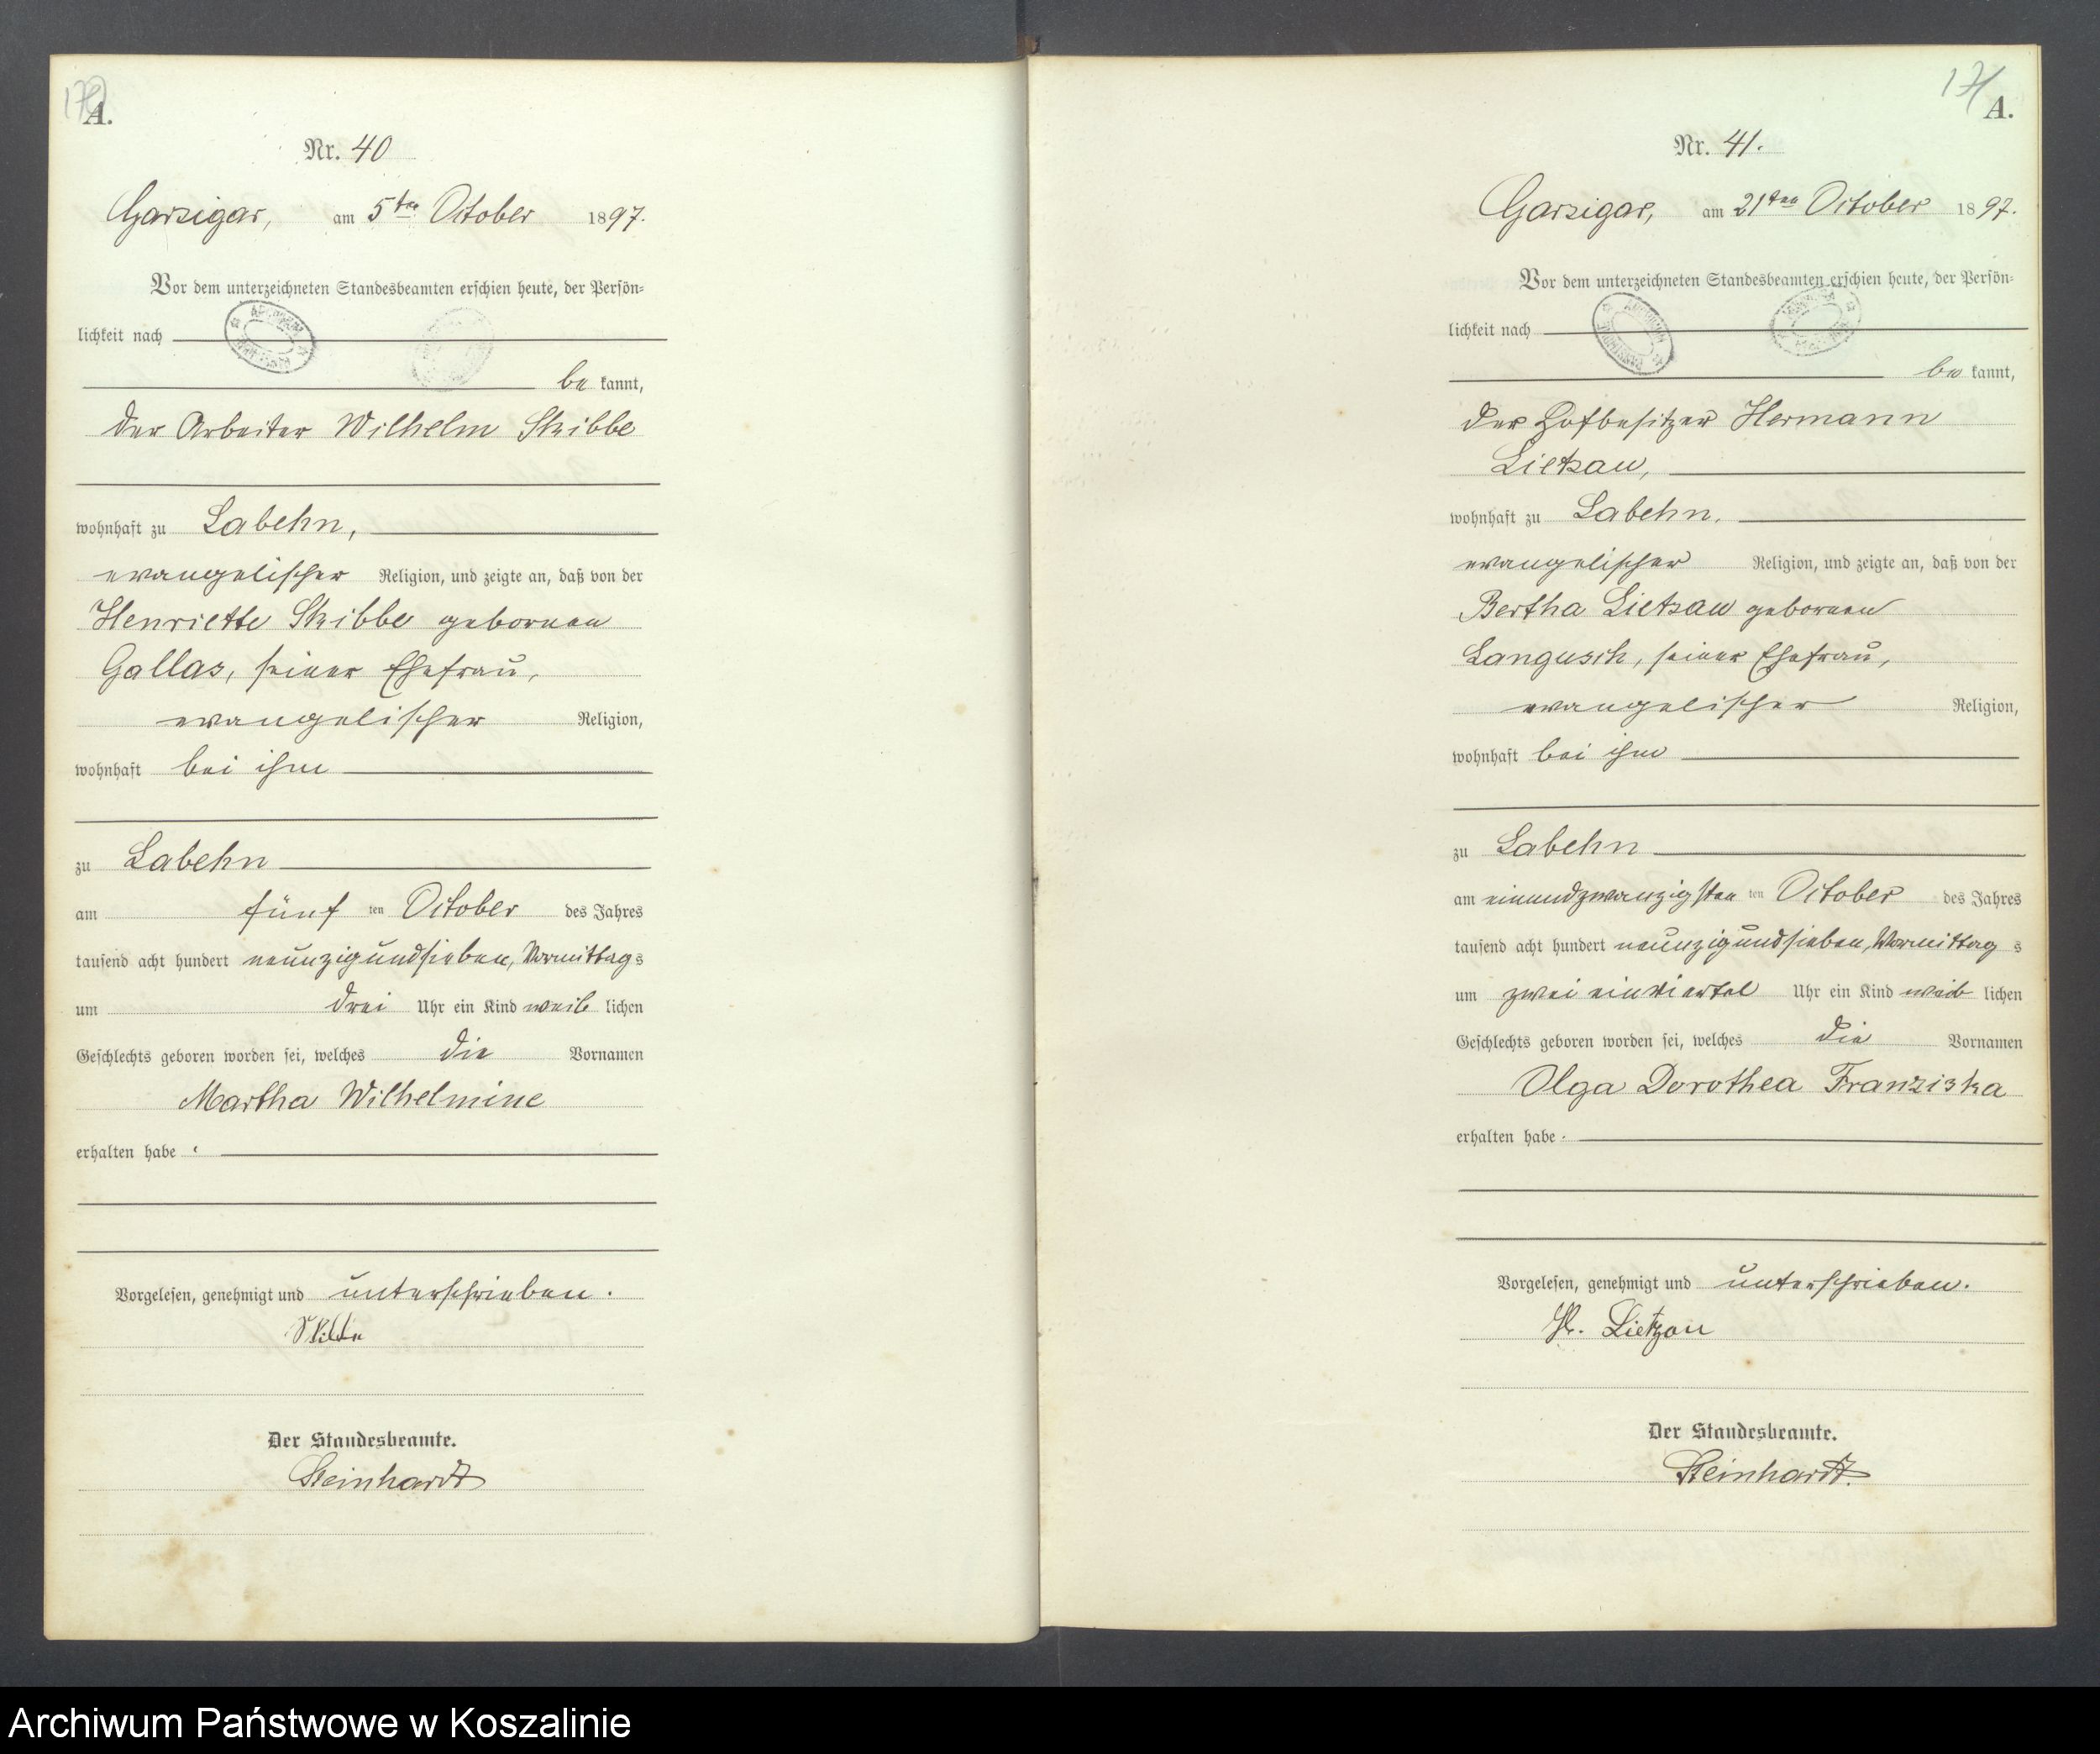 170
A.
Nr. 40
Garzigar, am 5ten October 1897.
Vor dem unterzeichneten Standesbeamten erschien heute, der Persön-
lichkeit nach
be kannt,
der Arbeiter Wilhelm Skibbe
wohnhaft zu Labehn,
evangelischer Religion, und zeigte an, daß von der
Henriette Skibbe gebornen
Gallas, seiner Ehefrau,
evangelischer Religion,
wohnhaft bei ihm
zu Labehn
am fünf ten October des Jahres
tausend acht hundert neunzigundsieben, Vormittag s
um drei Uhr ein Kind weib lichen
Geschlechts geboren worden sei, welches die Vornamen
Martha Wilhelmine
erhalten habe.
Vorgelesen, genehmigt und unterschrieben.
Skibbe
Der Standesbeamte.
Steinhardt
171
A.
Nr. 41.
Garzigar, am 21ten October 1897.
Vor dem unterzeichneten Standesbeamten erschien heute, der Persön-
lichkeit nach
be kannt,
der Hofbesitzer Hermann
Lietzau,
wohnhaft zu Labehn,
evangelischer Religion, und zeigte an, daß von der
Bertha Lietzau gebornen
Langusch, seiner Ehefrau,
evangelischer Religion,
wohnhaft bei ihm
zu Labehn
am einundzwanzigsten ten October des Jahres
tausend acht hundert neunzigundsieben, Vormittag s
um zwei einviertel Uhr ein Kind weib lichen
Geschlechts geboren worden sei, welches die Vornamen
Olga Dorothea Franziska
erhalten habe.
Vorgelesen, genehmigt und unterschrieben.
H. Lietzau
Der Standesbeamte.
Steinhardt.
Archiwum Państwowe w Koszalinie